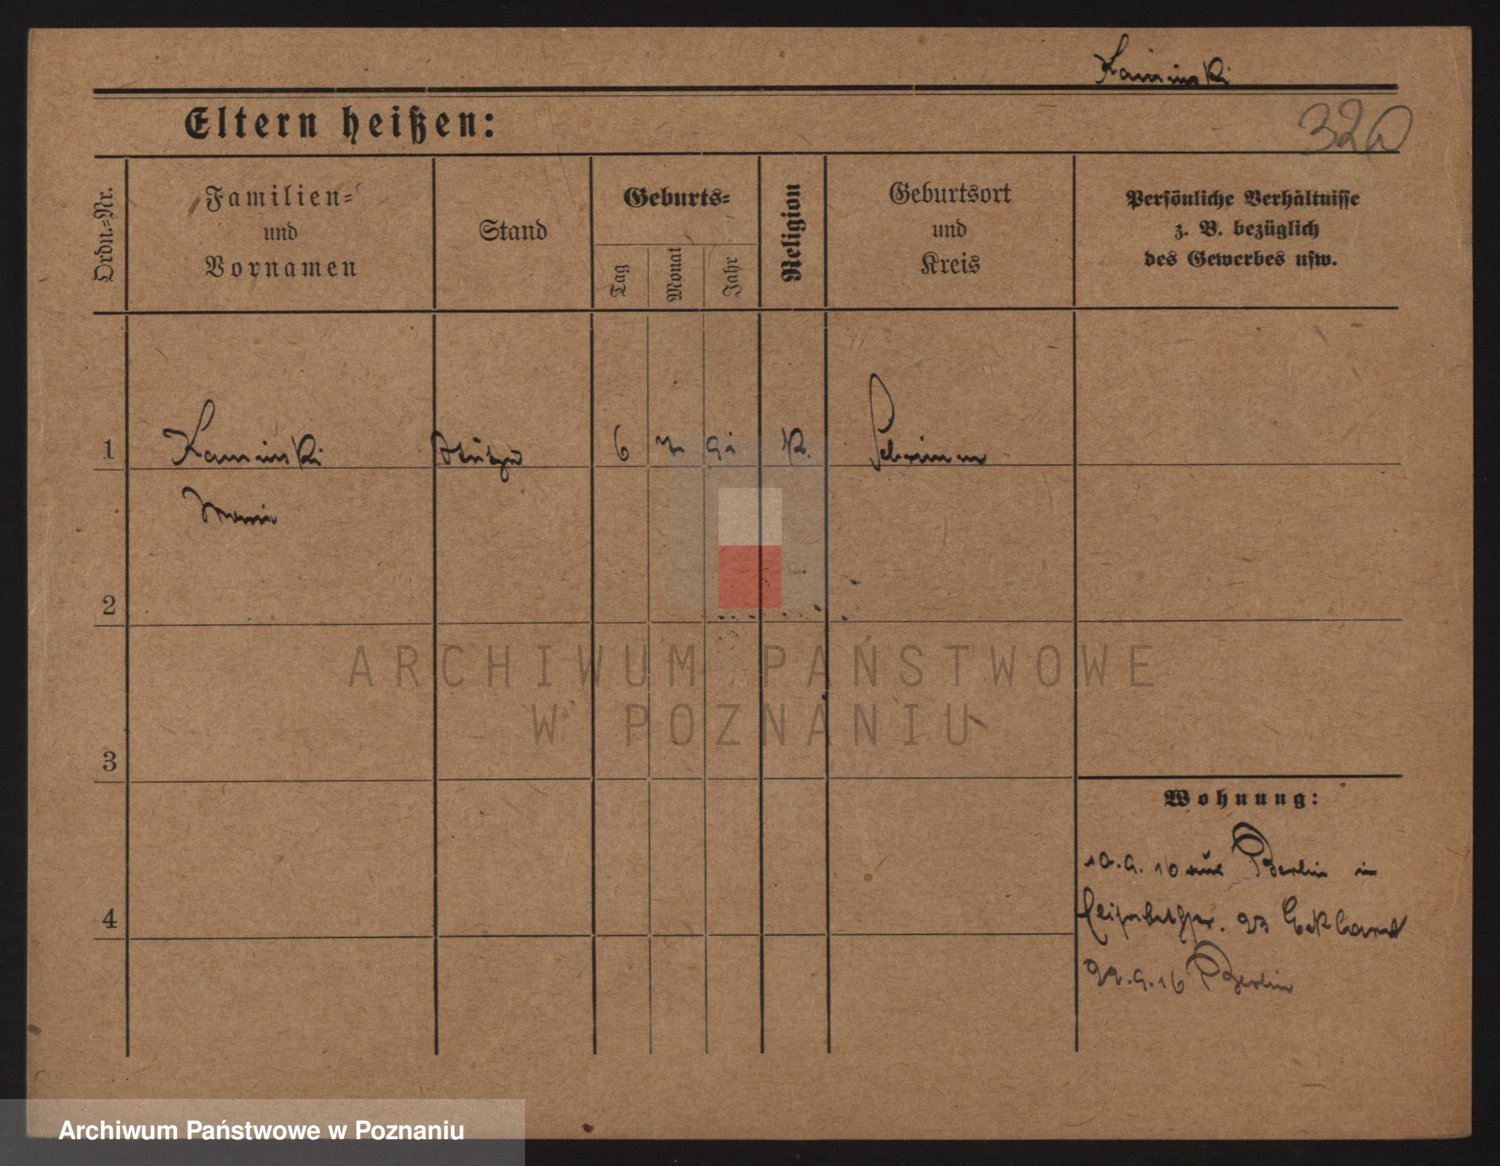 Kaminski
Eltern heißen:
320
Ordn.-Nr.
Familien-
und
Vornamen
Stand
Geburts-
Tag
Monat
Jahr
Religion
Geburtsort
und
Kreis
Persönliche Verhältnisse
z. B. bezüglich
des Gewerbes usw.
1 Kaminski 6 K. Schrimm
2
3
4
Wohnung:
Berlin in
23
Berlin
ARCHIWUM PAŃSTWOWE
W POZNANIU
Archiwum Państwowe w Poznaniu